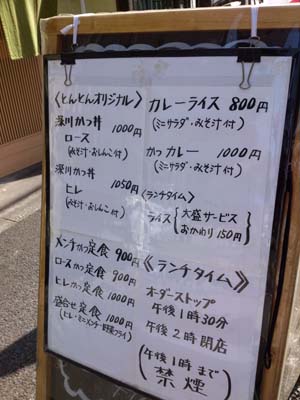 〈とんとんオリジナル〉
深川かつ丼
ロース 1000円
(みそ汁・おしんこ付)
深川かつ丼
ヒレ 1050円
(みそ汁・おしんこ付)
メンチかつ定食 900円
ロースかつ定食 900円
ヒレかつ定食 1000円
盛合せ定食 1000円
(ヒレ・ミニメンチ・野菜フライ)
カレーライス 800円
(ミニサラダ・みそ汁付)
かつカレー 1000円
(ミニサラダ・みそ汁付)
〈ランチタイム〉
ライス{大盛サービス
おかわり150円
《ランチタイム》
オーダーストップ
午後1時30分
午後2時閉店
(午後1時まで
禁煙)